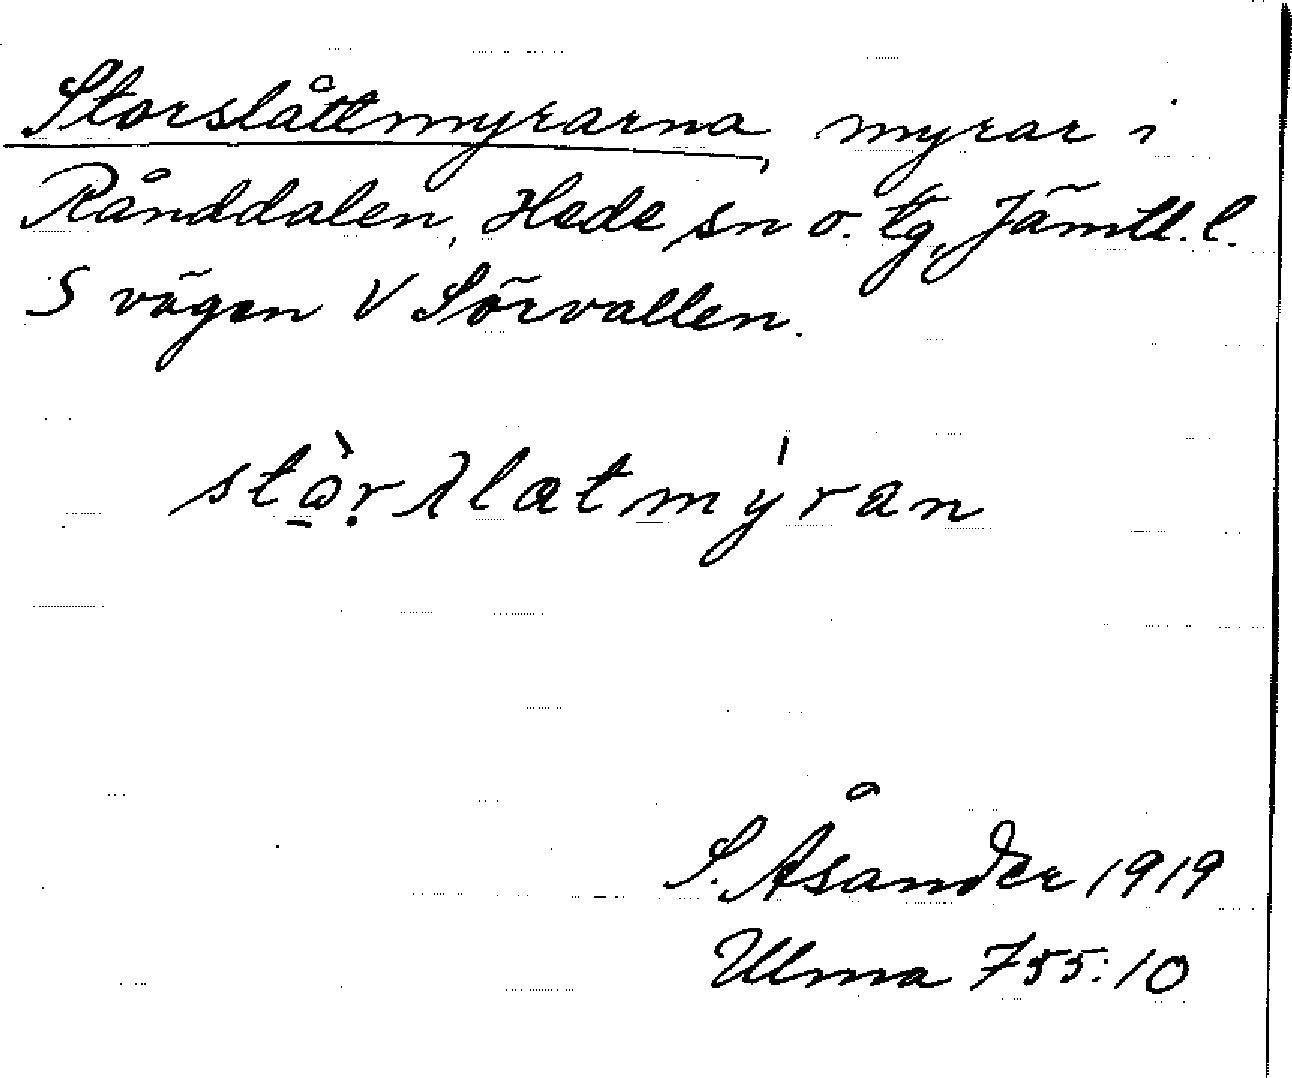 Storslåttmyrarna, myrar i
Rånddalen, Hede sn o. tg, Jämtl. l.
S vägen V Sörvallen.
S. Åsander 1919
Ulma 755:10